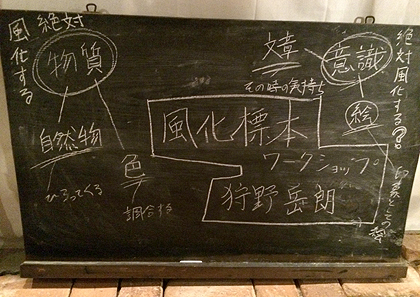 絶対
風化する
物質
自然物
ひろってくる
色
調合する
文章
その時の気持ち
意識
絵
絶対風化する?
風化標本
ワークショップ
狩野岳朗